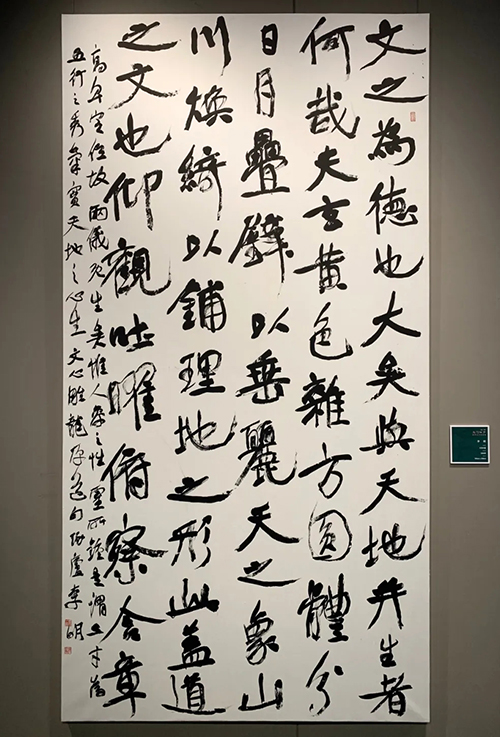 文之為德也大矣與天地并生者
何哉夫玄黃色雜方圓體分
日月疊璧以垂麗天之象山
川煥綺以鋪理地之形此蓋道
之文也仰觀吐曜俯察含章
高卑定位故兩儀既生矣惟人參之性靈所鍾是謂三才為
五行之秀氣實天地之心生 文心雕龍原道句 廬李明